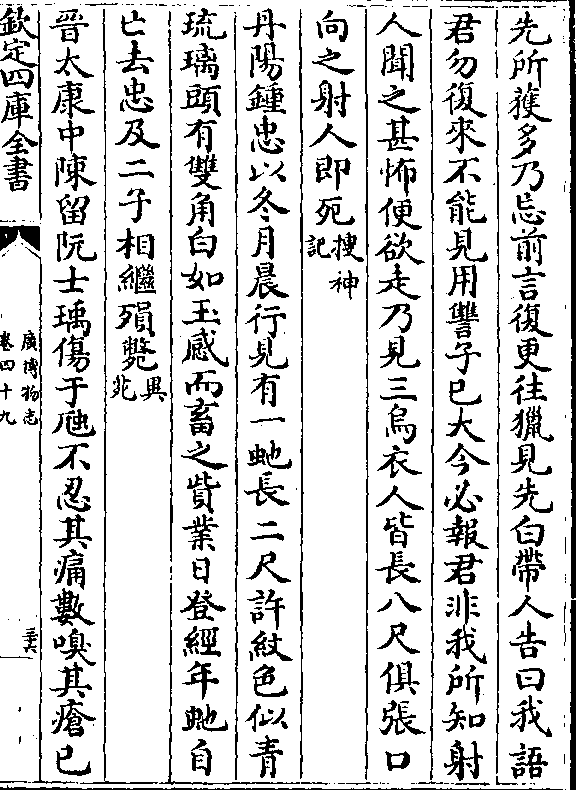 先所獲多乃忘前言復更往獵見先白帶人告曰我語
君勿復來不能見用讐子已大今必報君非我所知射
人聞之甚怖便欲走乃見三烏衣人皆長八尺俱張口
向之射人即死搜神記
丹陽鍾忠以冬月晨行見有一虵長二尺許紋色似青
琉璃頭有雙角白如玉感而畜之貲業日登經年虵自
亡去忠及二子相繼殞斃異苑
晉太康中陳留阮士瑀傷于虺不忍其痛數嗅其瘡已
欽定四庫全書
廣博物志
卷四十九